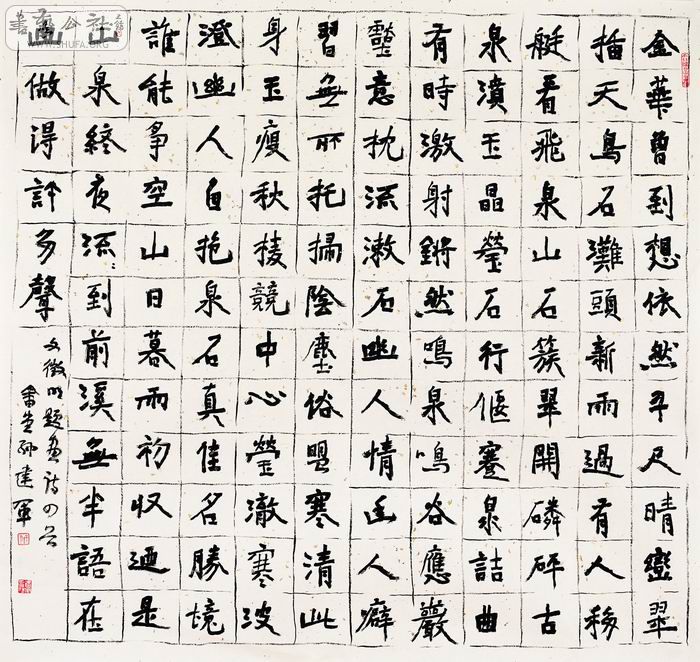 金華曾到想依然尺晴巒翠
插天鳥石灘頭新雨過有人移
艇看飛泉山石簇翠開磷砰古
泉濆玉晶瑩石行偃蹇泉詰曲
有時激射鏘然鳴泉鳴谷應巖
壑意枕流漱石幽人情幽人癖
習無所托掃除塵俗盟寒清此
身玉瘦秋稜競中心瑩澈寒波
澄幽人自抱泉石真佳名勝境
誰能爭空山日暮雨初收迺是
山泉終夜流：到前溪無半語在
山做得許多聲
文徵明題畫詩四首
孫建軍
WWW.SHUFA.ORG